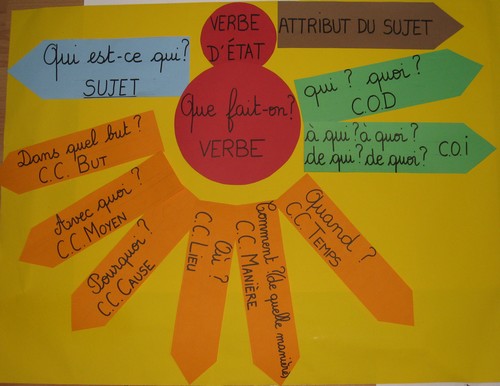 VERBE
D'ÉTAT
ATTRIBUT DU SUJET
Qui est-ce qui?
SUJET
Que fait-on?
VERBE
qui ? quoi ?
C.O.D
à qui ? à quoi ?
de qui ? de quoi ? C.O.i
Dans quel but ?
C.C. BUT
Avec quoi ?
C.C. MOYEN
Pourquoi ?
C.C. CAUSE
Où ?
C.C. LIEU
Comment ? / de quelle manière
C.C. MANIÈRE
Quand ?
CC. TEMPS